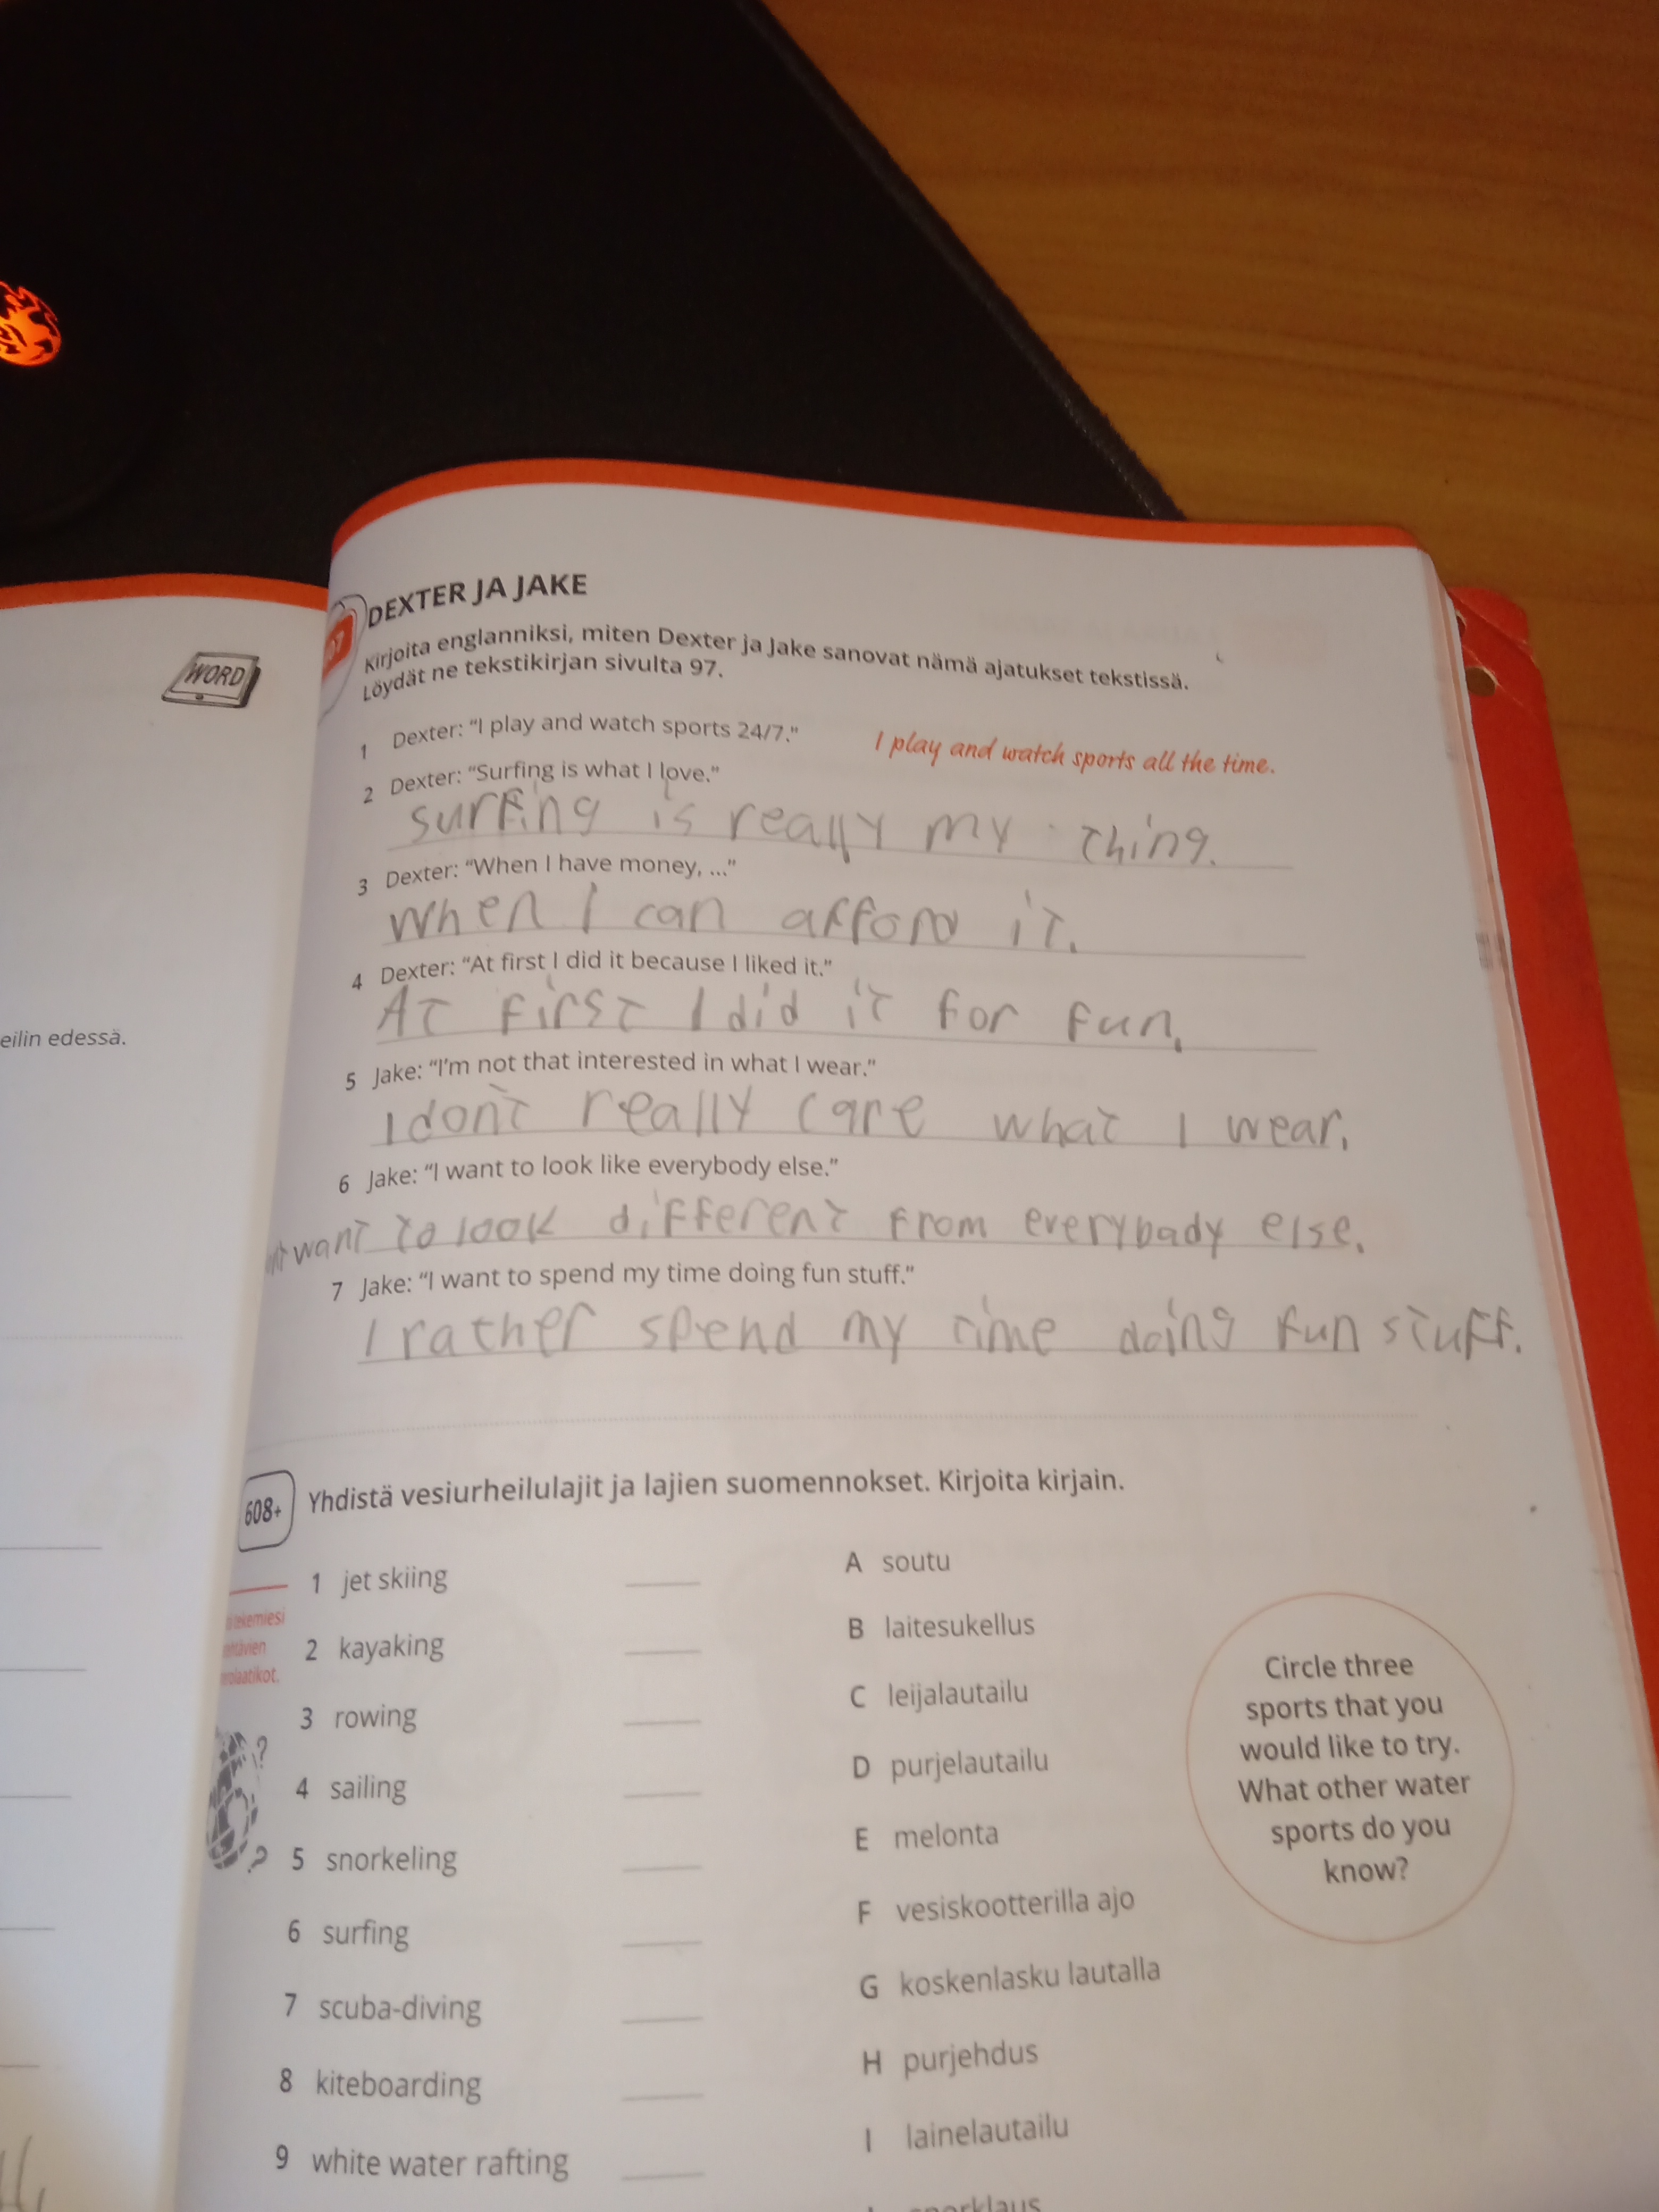 WORD
eilin edessä.
DEXTER JA JAKE
Kirjoita englanniksi, miten Dexter ja Jake sanovat nämä ajatukset tekstissä.
Löydät ne tekstikirjan sivulta 97.
1 Dexter: "I play and watch sports 24/7." I play and watch sports all the time.
2 Dexter: "Surfing is what I love."
surfing is really my thing.
3 Dexter: "When I have money, ..."
When I can afford it.
4 Dexter: "At first I did it because I liked it."
At first I did it for fun.
5 Jake: "I'm not that interested in what I wear."
I don't really care what I wear.
6 Jake: "I want to look like everybody else."
want to look different from everybady else.
7 Jake: "I want to spend my time doing fun stuff."
I rather spend my time doing fun stuff.
608+ Yhdistä vesiurheilulajit ja lajien suomennokset. Kirjoita kirjain.
1 jet skiing
2 kayaking
3 rowing
4 sailing
5 snorkeling
6 surfing
7 scuba-diving
8 kiteboarding
9 white water rafting
A soutu
B laitesukellus
C leijalautailu
D purjelautailu
E melonta
F vesiskootterilla ajo
G koskenlasku lautalla
H purjehdus
I lainelautailu
Circle three
sports that you
would like to try.
What other water
sports do you
know?